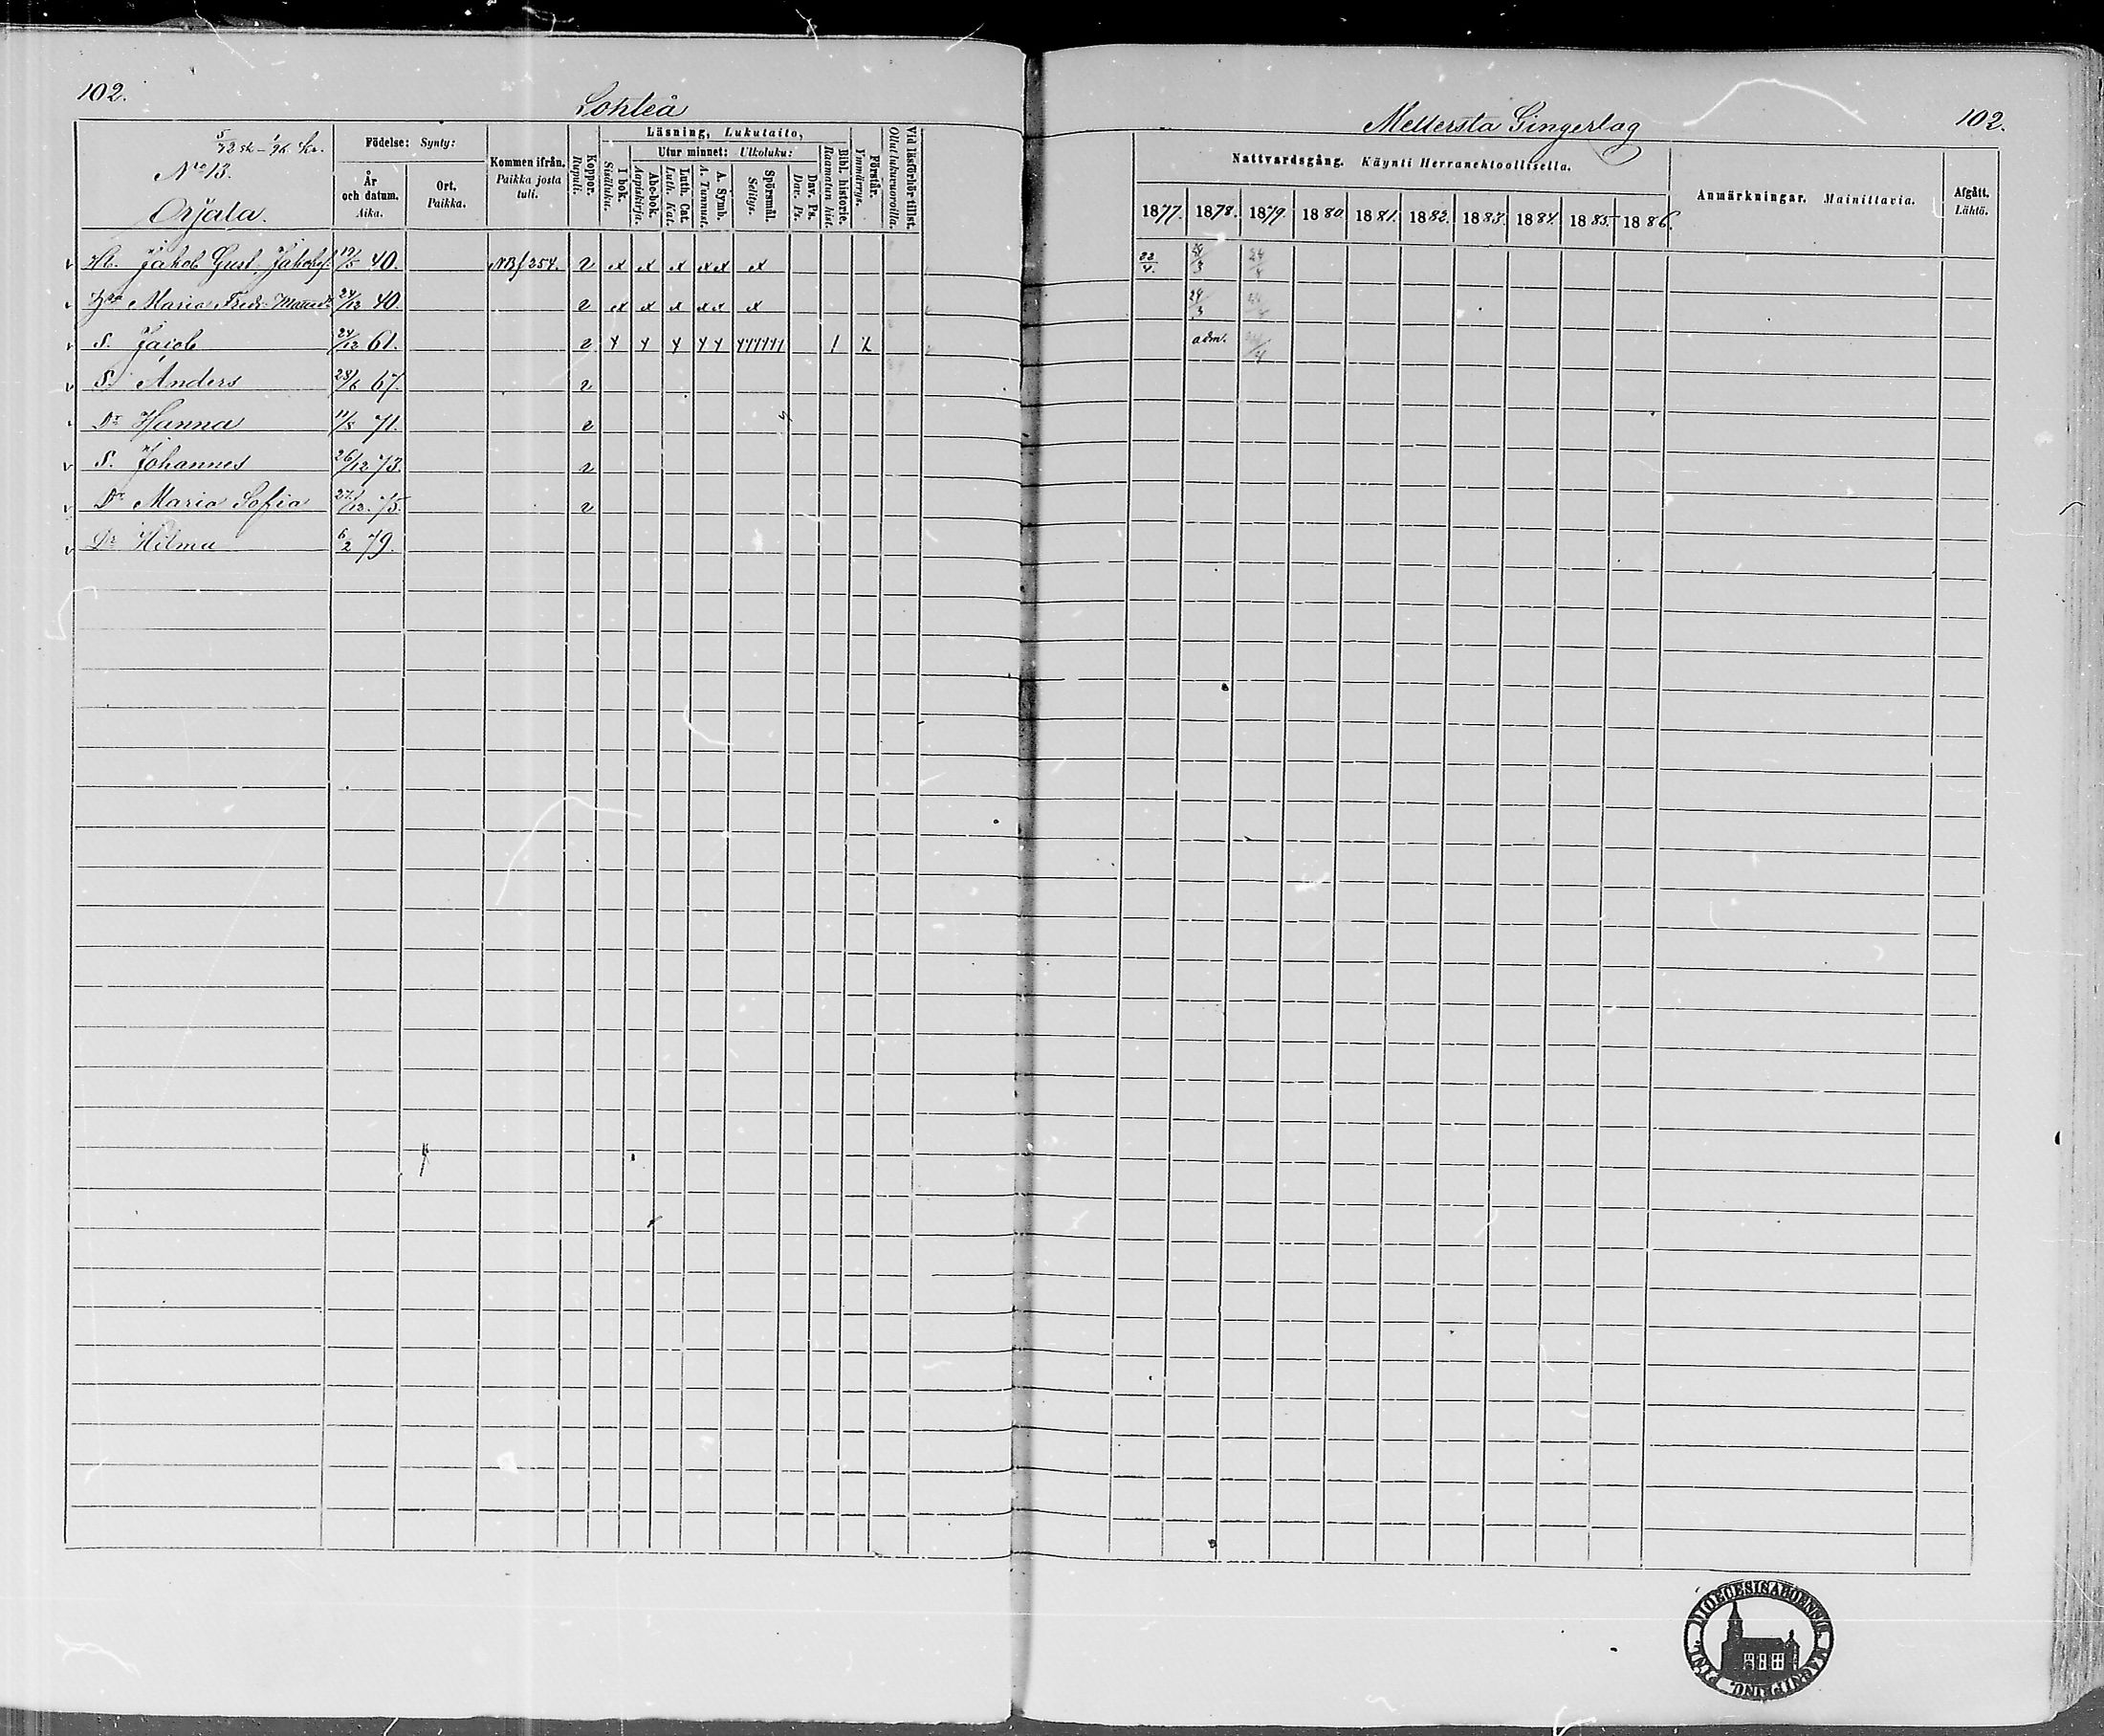 102.
Lohteå
Mellersta Gingerlag
102.
5/32 sk - 96 kr.
Nro 13.
Orjala.
Födelse: Synty:
År och datum. Aika.
Ort. Paikka.
Kommen ifrån. Paikka josta tuli.
Koppor. Rupuli.
Läsning, Lukutaito,
I bok. Sisäluku.
Utur minnet: Ulkoluku:
Abc-bok. Aapiskirja.
Luth. Cat. Luth. Kat.
A. Symb. A. Tunnust.
Spörsmål. Selitys.
Dav. Ps. Dav. Ps.
Bibl. historie. Raamatun hist.
Förstår. Ymmärrys.
Vid läsförhör tillst. Ollut lukuvuoroilla.
Nattvardsgång. Käynti Herranehtoollisella.
1877. 1878. 1879. 1880 1881. 1882. 1883. 1884. 1885. 1886.
Anmärkningar. Mainittavia.
Afgått. Lähtö.
Jakob Gust. Jakobsf. 17/5 40. NB f 254. v x x x x x x 22/4. 24/3 24/4
Hu Maria Fredr. 24/12 40. v x x x x x x 24/3
S. Jacob 24/12 61. v adm.
S. Anders 28/6 67. v
Dr Hanna 11/8 71. v
S. Johannes 26/12 73. v
Dr Maria Sofia 27/12 75. v
Dr Hilma 6/2 79.